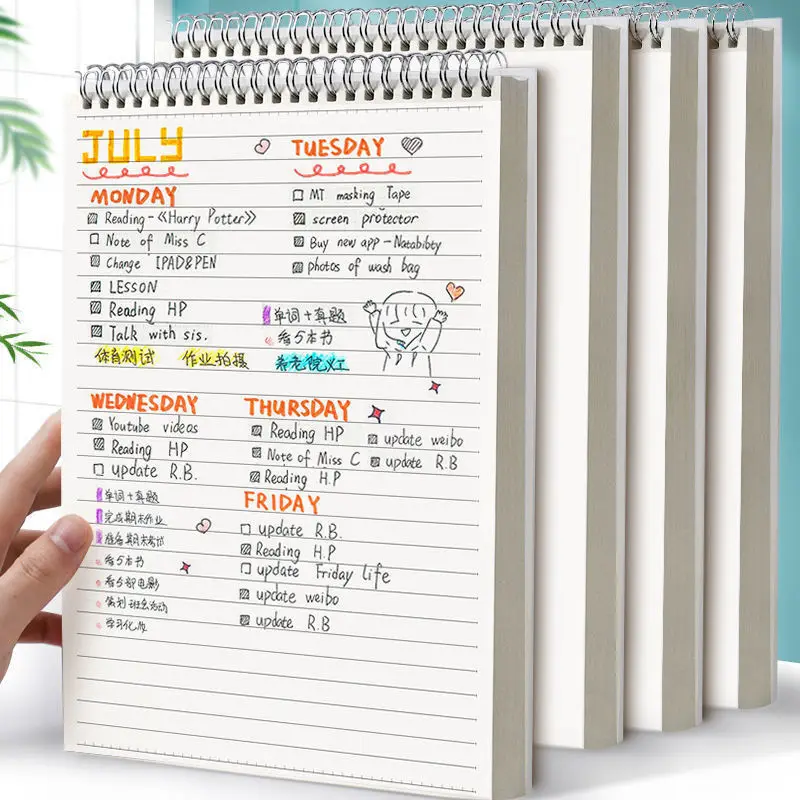 JULY
MONDAY
Reading-《Harry Potter》
Note of Miss C
Change IPAD&PEN
LESSON
Reading HP
Talk with sis.
TUESDAY
MT masking Tape
screen protector
Buy new app-Natabibty
photos of wash bag
单词+真题
看5本书
体育测试 作业拍摄 养老院义工
WEDNESDAY
Youtube videos
Reading HP
update R.B.
单词+真题
完成期末作业
准备期末考试
看5本书
看5部电影
策划班会活动
学习化妆
THURSDAY
Reading HP
update weibo
Note of Miss C
update R.B
Reading H.P
FRIDAY
update R.B.
Reading H.P
update Friday life
update weibo
update R.B